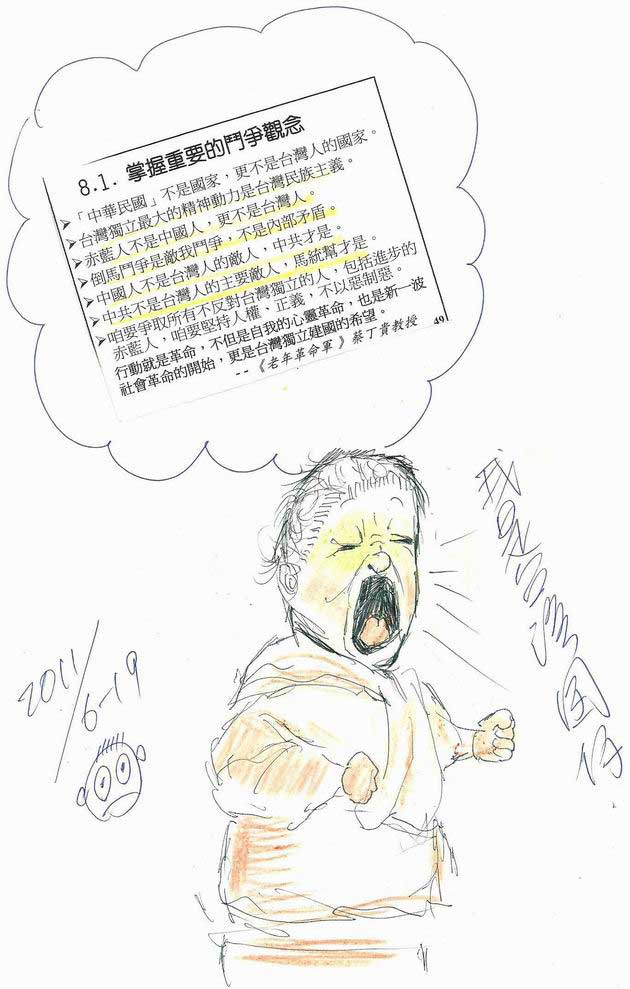 8.1. 掌握重要的鬥爭觀念
➢「中華民國」不是國家，更不是台灣人的國家。
➢台灣獨立最大的精神動力是台灣民族主義。
➢赤藍人不是中國人，更不是台灣人。
➢倒馬鬥爭是敵我鬥爭，不是內部矛盾。
➢中國人不是台灣人的敵人，中共才是。
➢中共不是台灣人的主要敵人，馬統幫才是。
➢咱要爭取所有不反對台灣獨立的人，包括進步的
赤藍人，咱要堅持人權、正義，不以惡制惡。
行動就是革命，不但是自我的心靈革命，也是新一波
社會革命的開始，更是台灣獨立建國的希望。
--《老年革命軍》蔡丁貴教授
49
我是台灣囡仔
2011/6-19